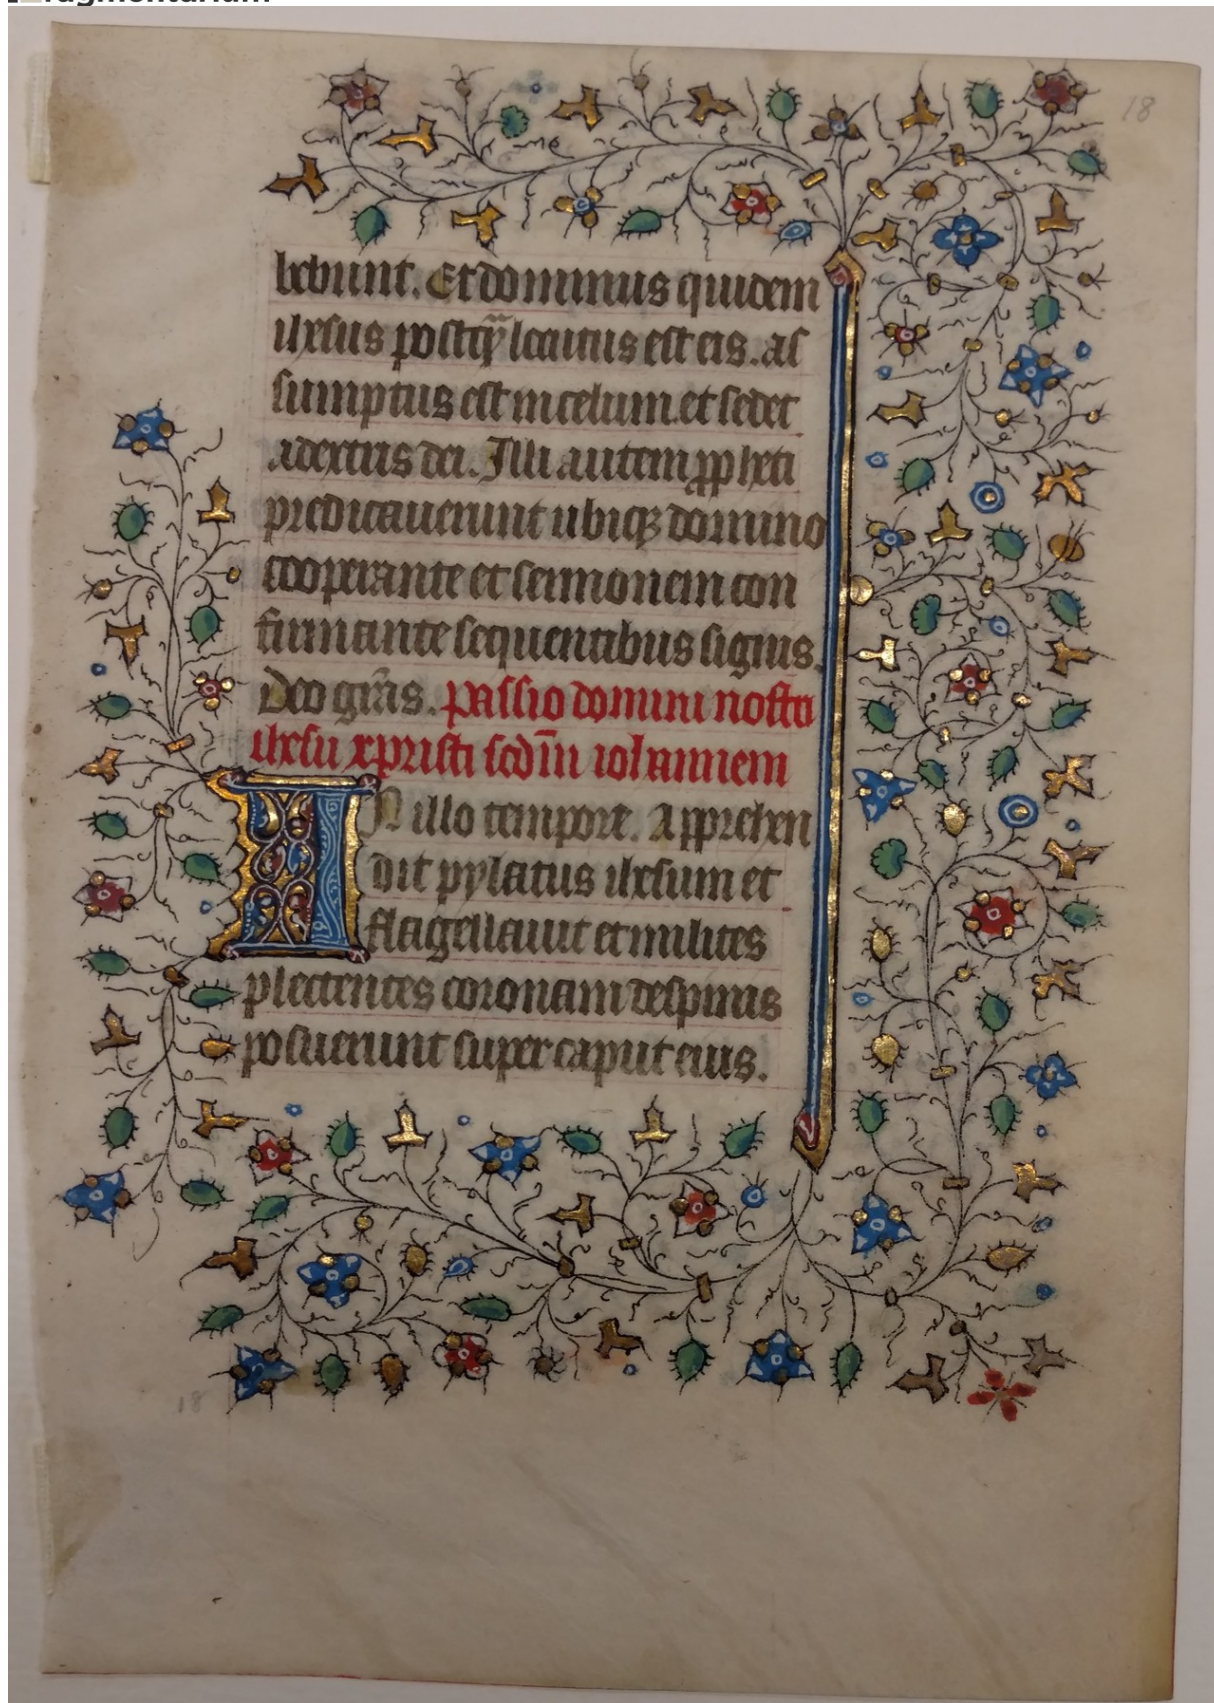 ragmentarium
18
bebunt. Et dominus quidem
ihesus postq̄ locutus est eis. as
sumptus est in celum. et sedet
a dextris dei. Illi autem ꝓpheti
predicauerunt ubiqꝫ domino
cooperante et sermonem con
firmante sequentibus signis.
Deo gr̄as. Passio domini nostri
ihesu xpristi scd̄m iohannem
IN illo tempore. Apprehen
dit pylatus ihesum et
flagellauit et milites
plectentes coronam de spinis
posuerunt super caput eius.
18